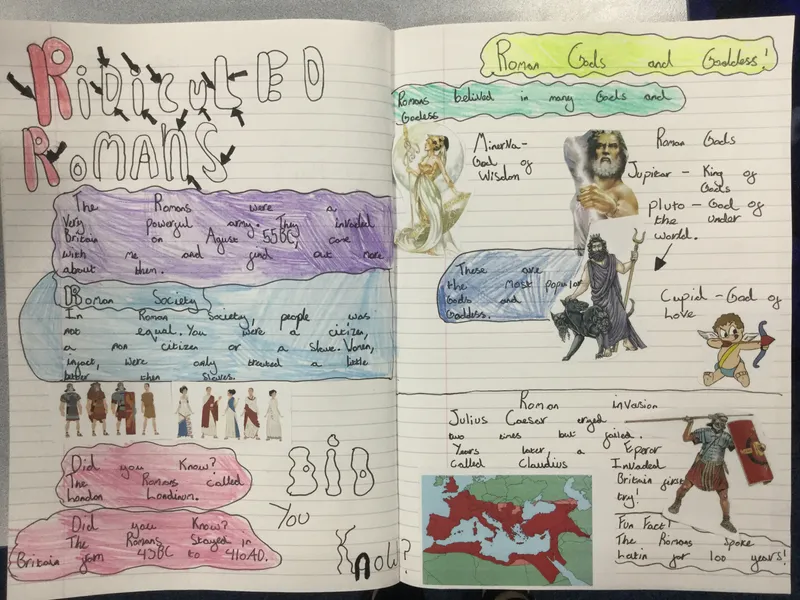 RidicuLED
RomANS
The Romans were a
Very powerful army. They invaded
Britain on Agust 55BC, come
with me and find out more
about them.
Roman Society
In Roman Society, people was
not equal. You were a citizen,
a non citizen or a slave. Women,
infact, were only treated a little
better then slaves.
Did you Know?
The Romans called
London Londinum.
DID
You
Know?
Did you Know?
The Romans Stayed in
Britain from 43BC to 410AD.
Roman Gods and Goddess!
Romans belived in many Gods and
Godess
Minerva-
God of
Wisdom
Roman Gods
Jupitar - King of
Gods
Pluto - God of
the under
world.
These are
the most popular
Gods and
Goddess.
Cupid - God of
Love
Roman invasion
Julius Caesar
two times but failed.
Years later a Eperor
called Claudius Invaded
Britain first
try!
Fun Fact!
The Romans spoke
Latin for 100 years!